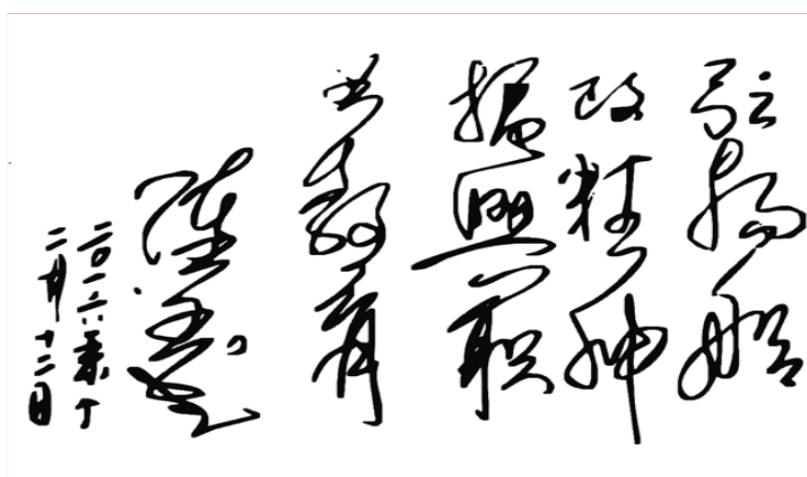 弘扬船
政精神
振興职
业教育
二〇一六年十
二月十二日